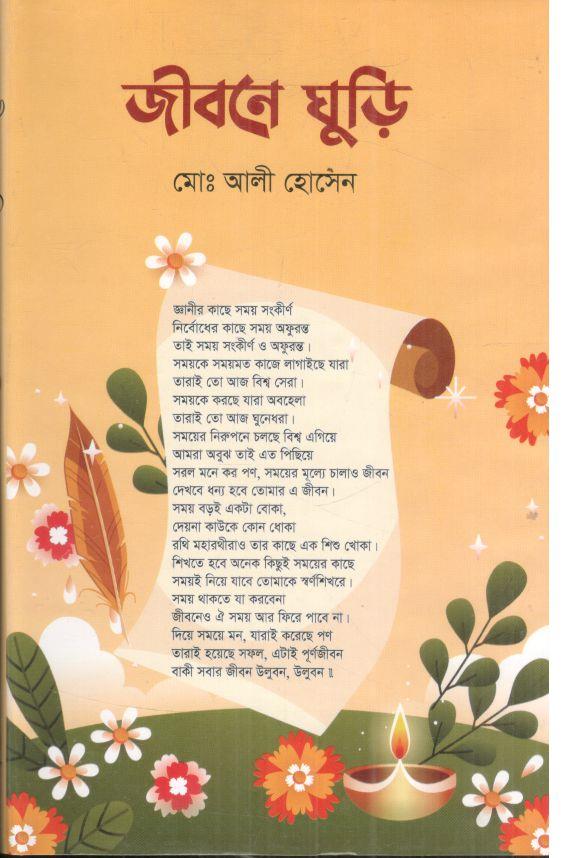 জীবনে ঘুড়ি
মোঃ আলী হোসেন
জ্ঞানীর কাছে সময় সংকীর্ণ
নির্বোধের কাছে সময় অফুরন্ত
তাই সময় সংকীর্ণ ও অফুরন্ত।
সময়কে সময়মত কাজে লাগাইছে যারা
তারাই তো আজ বিশ্ব সেরা।
সময়কে করছে যারা অবহেলা
তারাই তো আজ ঘুনেধরা।
সময়ের নিরুপনে চলছে বিশ্ব এগিয়ে
আমরা অবুঝ তাই এত পিছিয়ে
সরল মনে কর পণ, সময়ের মূল্যে চালাও জীবন
দেখবে ধন্য হবে তোমার এ জীবন।
সময় বড়ই একটা বোকা,
দেয়না কাউকে কোন ধোকা
রথি মহারথীরাও তার কাছে এক শিশু খোকা।
শিখতে হবে অনেক কিছুই সময়ের কাছে
সময়ই নিয়ে যাবে তোমাকে স্বর্ণশিখরে।
সময় থাকতে যা করবেনা
জীবনেও ঐ সময় আর ফিরে পাবে না।
দিয়ে সময়ে মন, যারাই করেছে পণ
তারাই হয়েছে সফল, এটাই পূর্ণজীবন
বাকী সবার জীবন উলুবন, উলুবন॥